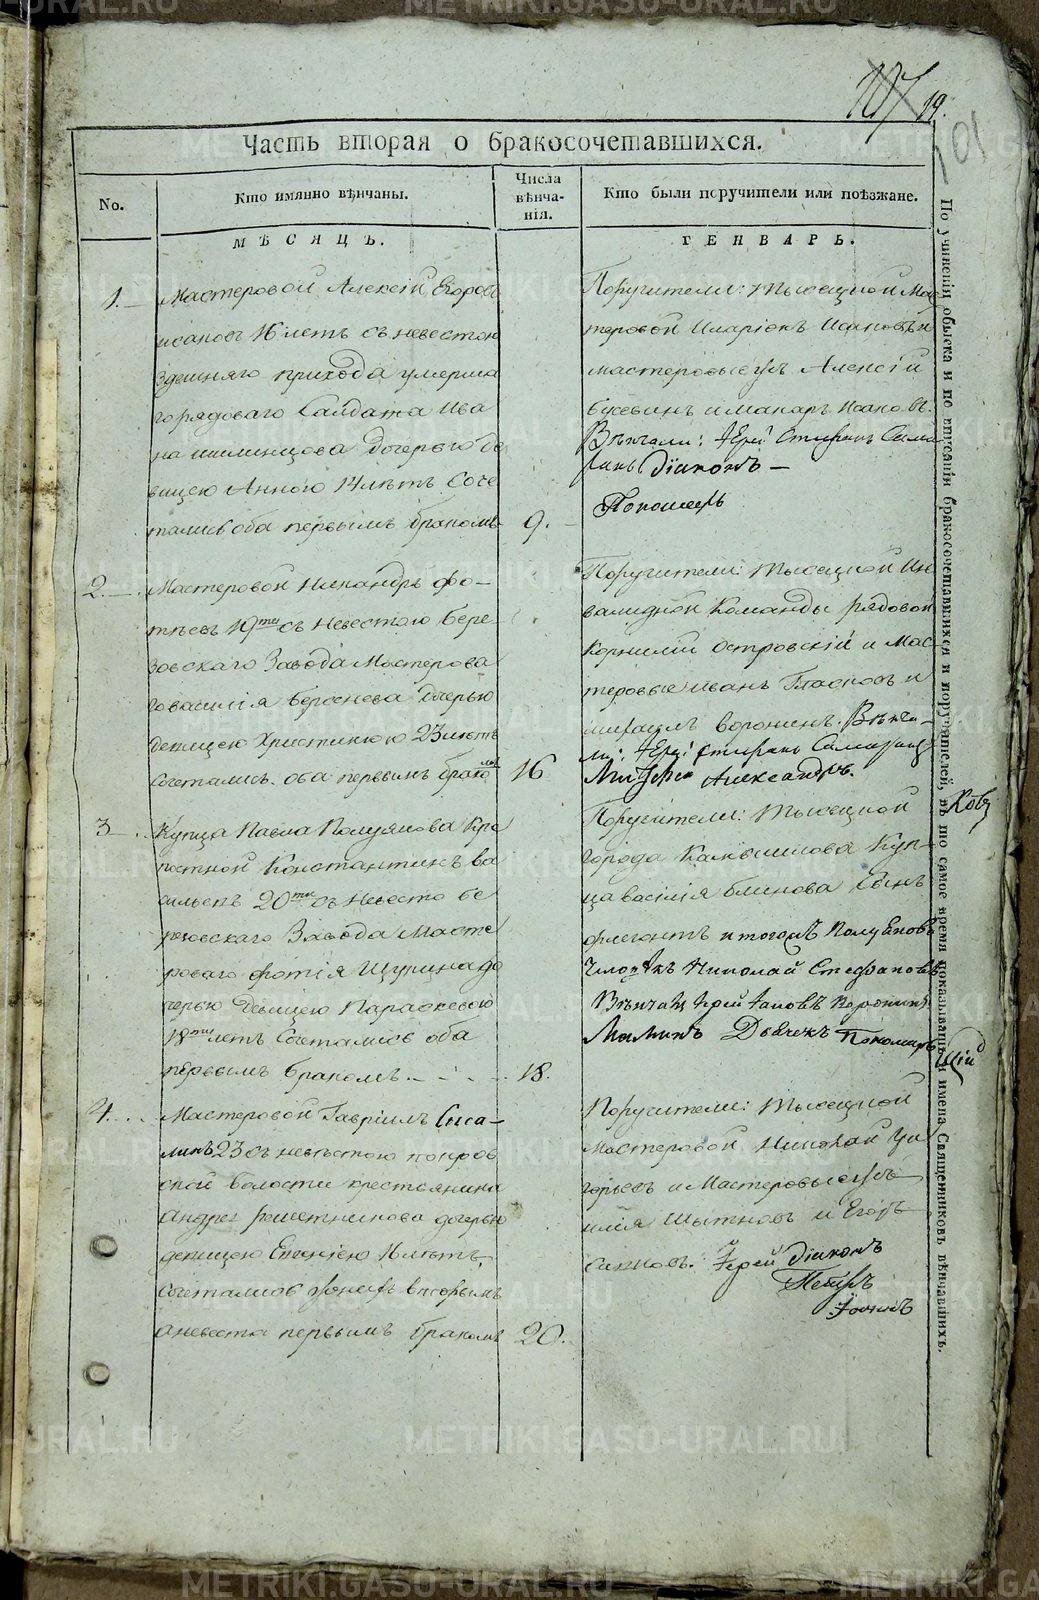 107 19.
101
Часть вторая о бракосочетавшихся.
No.
Кто имянно вѣнчаны.
Числа
вѣнча-
нія.
Кто были поручители или поѣзжане.
МѢСЯЦЪ.
ГЕНВАРЬ.
1.
Мастеровой Алексій Егоровъ
исаковъ 16 летъ съ невестою
здешняго прихода умерша
го рядоваго Салдата Ива
на дочерью де
вицею Анною 14 летъ Соче
тались оба первымъ бракомъ
9.
Поручители: тысецкой Мас
теровой Иларіонъ Исаковъ и
мастеровые Алексій
и макаръ Исаковъ.
Вѣнчали: Іерей Стефанъ
Діаконъ
Пономарь
2.
Мастеровой Никандръ фо-
тѣевъ 19ти съ Невестою Бере-
зовскаго Завода Мастерова
го василія берсенева дочерью
девицею Христиною 23 летъ
Сочетались оба первымъ бракомъ
16
Поручители: Тысецкой Ин
валидной Команды рядовой
Корнилій островскій и Мас
теровые иванъ и
михаилъ воронинъ. Вѣнча-
ли: Іерей Стефанъ
Александръ.
3.
Купца Павла Полуянова Кре
постной Константинъ ва
сильевъ 20ти съ Невестою бе
резовскаго Завода Масте
роваго фотія Щурина до
черью девицею Параскевою
18ти летъ Сочетались оба
первымъ бракомъ
18.
Поручители: Тысецкой
города Камышлова Куп-
ца василія блинова Сынъ
флегонтъ и тогожъ Полуянова
Человѣкъ Николай Стефановъ
Вѣнчали Іерей Іаковъ
Маминъ Дьячекъ Пономарь
4.
Мастеровой Гавріилъ
23 съ невестою покров
ской волости крестьянина
Андрея решетникова дочерью
девицею Евгеніею летъ
Сочетались женихъ вторымъ
а невеста первымъ бракомъ
20.
Поручители: Тысецкой
Мастеровой Николай Гри
горьевъ и Мастеровые
и Егоръ
Іерей Діаконъ
Петръ
Іоаннъ
По учиненіи обыска и по вписаніи бракосочетавшихся и поручителей, въ то самое время показывать и имена Священниковъ вѣнчавшихъ.
METRIKI.GASO-URAL.RU